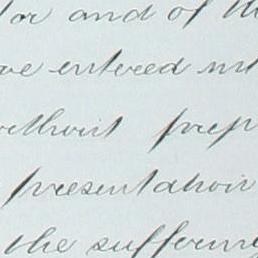 for and of the
ve entered int
without prep
presentation
the suffering